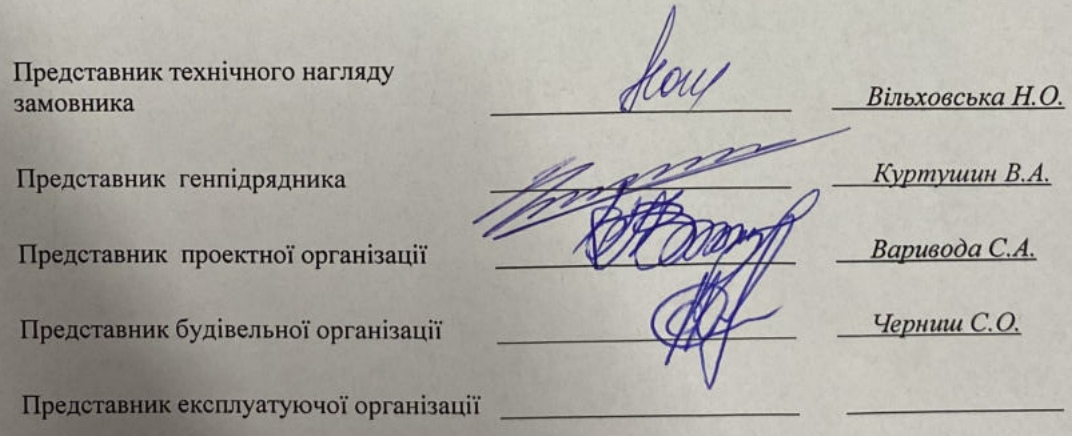 Представник технічного нагляду
замовника Вільховська Н.О.
Представник генпідрядника Куртушин В.А.
Представник проектної організації Варивода С.А.
Представник будівельної організації Черниш С.О.
Представник експлуатуючої організації